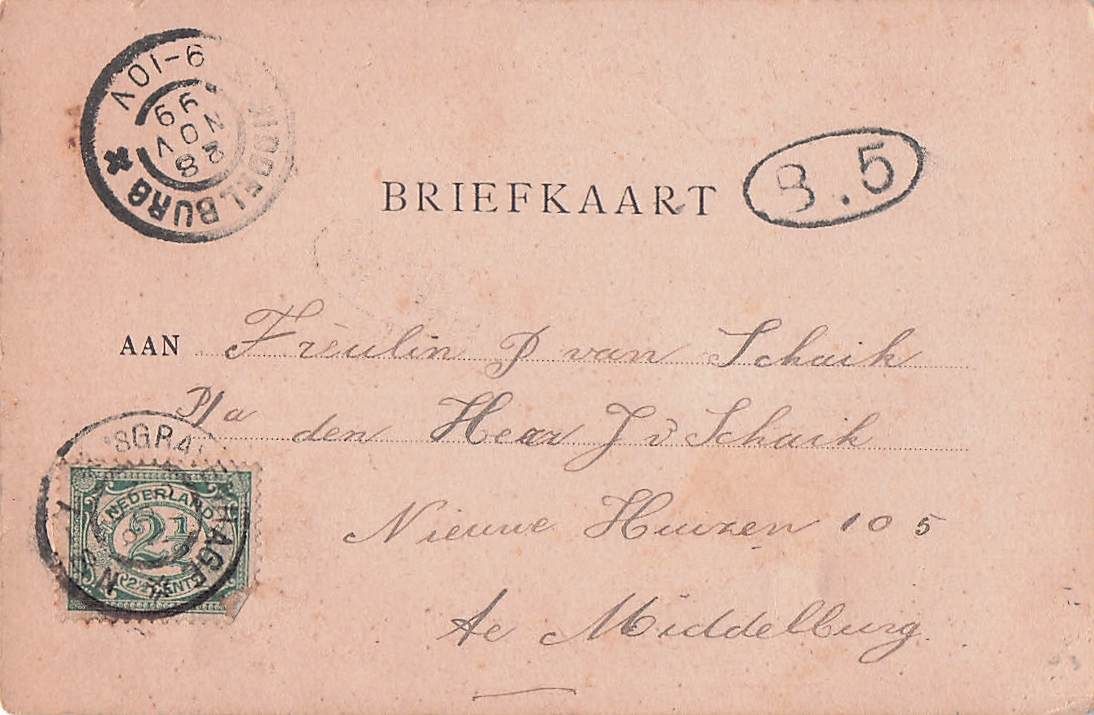 MIDDELBURG
28 NOV 99
9-10V
BRIEFKAART
8.5
AAN Freulin P van Schaik
P/a den Heer J v Schaik
Nieuwe Huizen 105
Te Middelburg.
'SGRAVENHAGE
NEDERLAND
2½
CENT